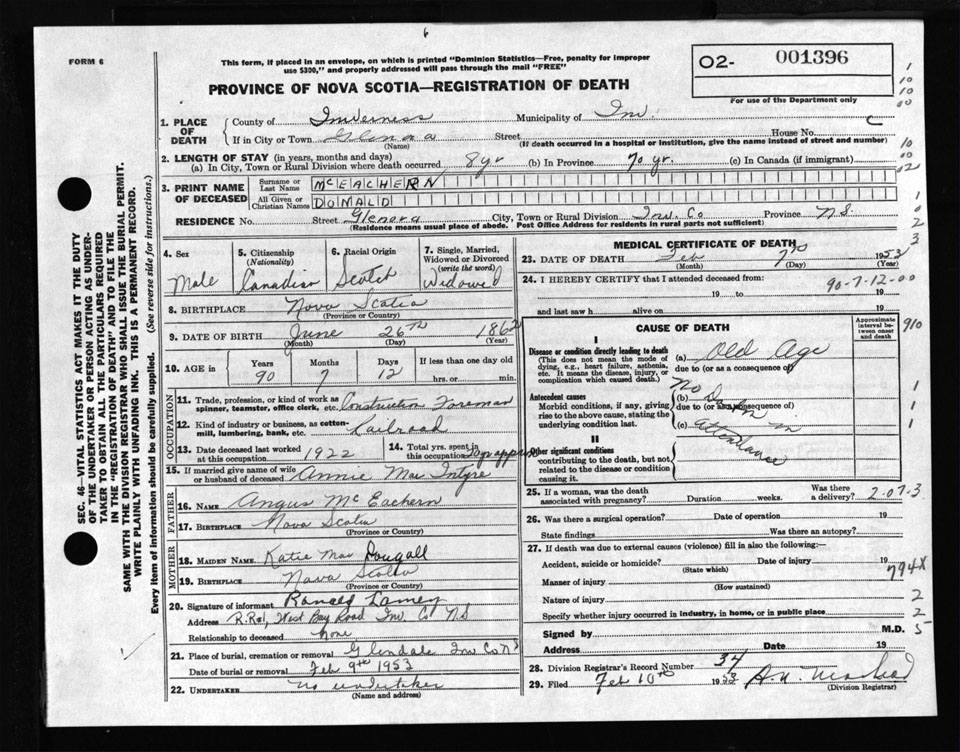 6
FORM 6
This form, if placed in an envelope, on which is printed "Dominion Statistics—Free, penalty for improper
use $300," and properly addressed will pass through the mail "FREE"
O2- 001396
For use of the Department only
PROVINCE OF NOVA SCOTIA—REGISTRATION OF DEATH
1. PLACE OF DEATH
County of Inverness Municipality of Inv.
If in City or Town Glenora Street House No. C
(Name) (If death occurred in a hospital or institution, give the name instead of street and number)
2. LENGTH OF STAY (in years, months and days)
(a) In City, Town or Rural Division where death occurred 8 yr (b) In Province 70 yr. (c) In Canada (if immigrant)
3. PRINT NAME OF DECEASED
Surname or Last Name McEACHERN
All Given or Christian Names DONALD
RESIDENCE No. Street Glenora City, Town or Rural Division Inv. Co Province N.S.
(Residence means usual place of abode. Post Office Address for residents in rural parts not sufficient)
4. Sex Male
5. Citizenship (Nationality) Canadian
6. Racial Origin Scotch
7. Single, Married, Widowed or Divorced (write the word) Widowed
8. BIRTHPLACE Nova Scotia
(Province or Country)
9. DATE OF BIRTH June 26th 1862
(Month) (Day) (Year)
10. AGE in Years 90 Months 7 Days 12 If less than one day old hrs. or min.
OCCUPATION
11. Trade, profession, or kind of work as spinner, teamster, office clerk, etc. Construction Foreman
12. Kind of industry or business, as cotton-mill, lumbering, bank, etc. Railroad
13. Date deceased last worked at this occupation 1922
14. Total yrs. spent in this occupation
15. If married give name of wife or husband of deceased Annie Mac Intyre
FATHER
16. NAME Angus Mc Eachern
17. BIRTHPLACE Nova Scotia
(Province or Country)
MOTHER
18. MAIDEN NAME Katie Mac Dougall
19. BIRTHPLACE Nova Scotia
(Province or Country)
20. Signature of informant
Address R.R#1, West Bay Road Inv. Co N.S
Relationship to deceased None
21. Place of burial, cremation or removal Glendale Inv Co N.S
Date of burial or removal Feb 9th 1953
22. UNDERTAKER no undertaker
(Name and address)
MEDICAL CERTIFICATE OF DEATH
23. DATE OF DEATH Feb 7th 1953
(Month) (Day) (Year)
24. I HEREBY CERTIFY that I attended deceased from:
90-7-12-00
19 to 19
and last saw h alive on 19
CAUSE OF DEATH
Approximate interval between onset and death
I
Disease or condition directly leading to death
(This does not mean the mode of dying, e.g., heart failure, asthenia, etc. It means the disease, injury, or complication which caused death.)
(a) Old Age
due to (or as a consequence of)
Antecedent causes
Morbid conditions, if any, giving rise to the above cause, stating the underlying condition last.
(b) No
due to (or as a consequence of)
(c) Attendance
II
Other significant conditions
contributing to the death, but not related to the disease or condition causing it.
25. If a woman, was the death associated with pregnancy? Duration weeks. Was there a delivery? 2-07-3
26. Was there a surgical operation? Date of operation 19
State findings Was there an autopsy?
27. If death was due to external causes (violence) fill in also the following:—
Accident, suicide or homicide? Date of injury 19
(State which)
794X
Manner of injury
(How sustained)
Nature of injury 2
Specify whether injury occurred in industry, in home, or in public place 2
Signed by M.D. 5
Address Date 19
28. Division Registrar's Record Number 34
29. Filed Feb 10th 1953
(Division Registrar)
SEC. 46—VITAL STATISTICS ACT MAKES IT THE DUTY
OF THE UNDERTAKER OR PERSON ACTING AS UNDER-
TAKER TO OBTAIN ALL THE PARTICULARS REQUIRED
IN THE "REGISTRATION OF DEATH" AND TO FILE THE
SAME WITH THE DIVISION REGISTRAR WHO SHALL ISSUE THE BURIAL PERMIT.
WRITE PLAINLY WITH UNFADING INK. THIS IS A PERMANENT RECORD.
Every item of information should be carefully supplied. (See reverse side for instructions.)
1
10
10
00
10
00
02
1
0
2
3
910
1
1
1